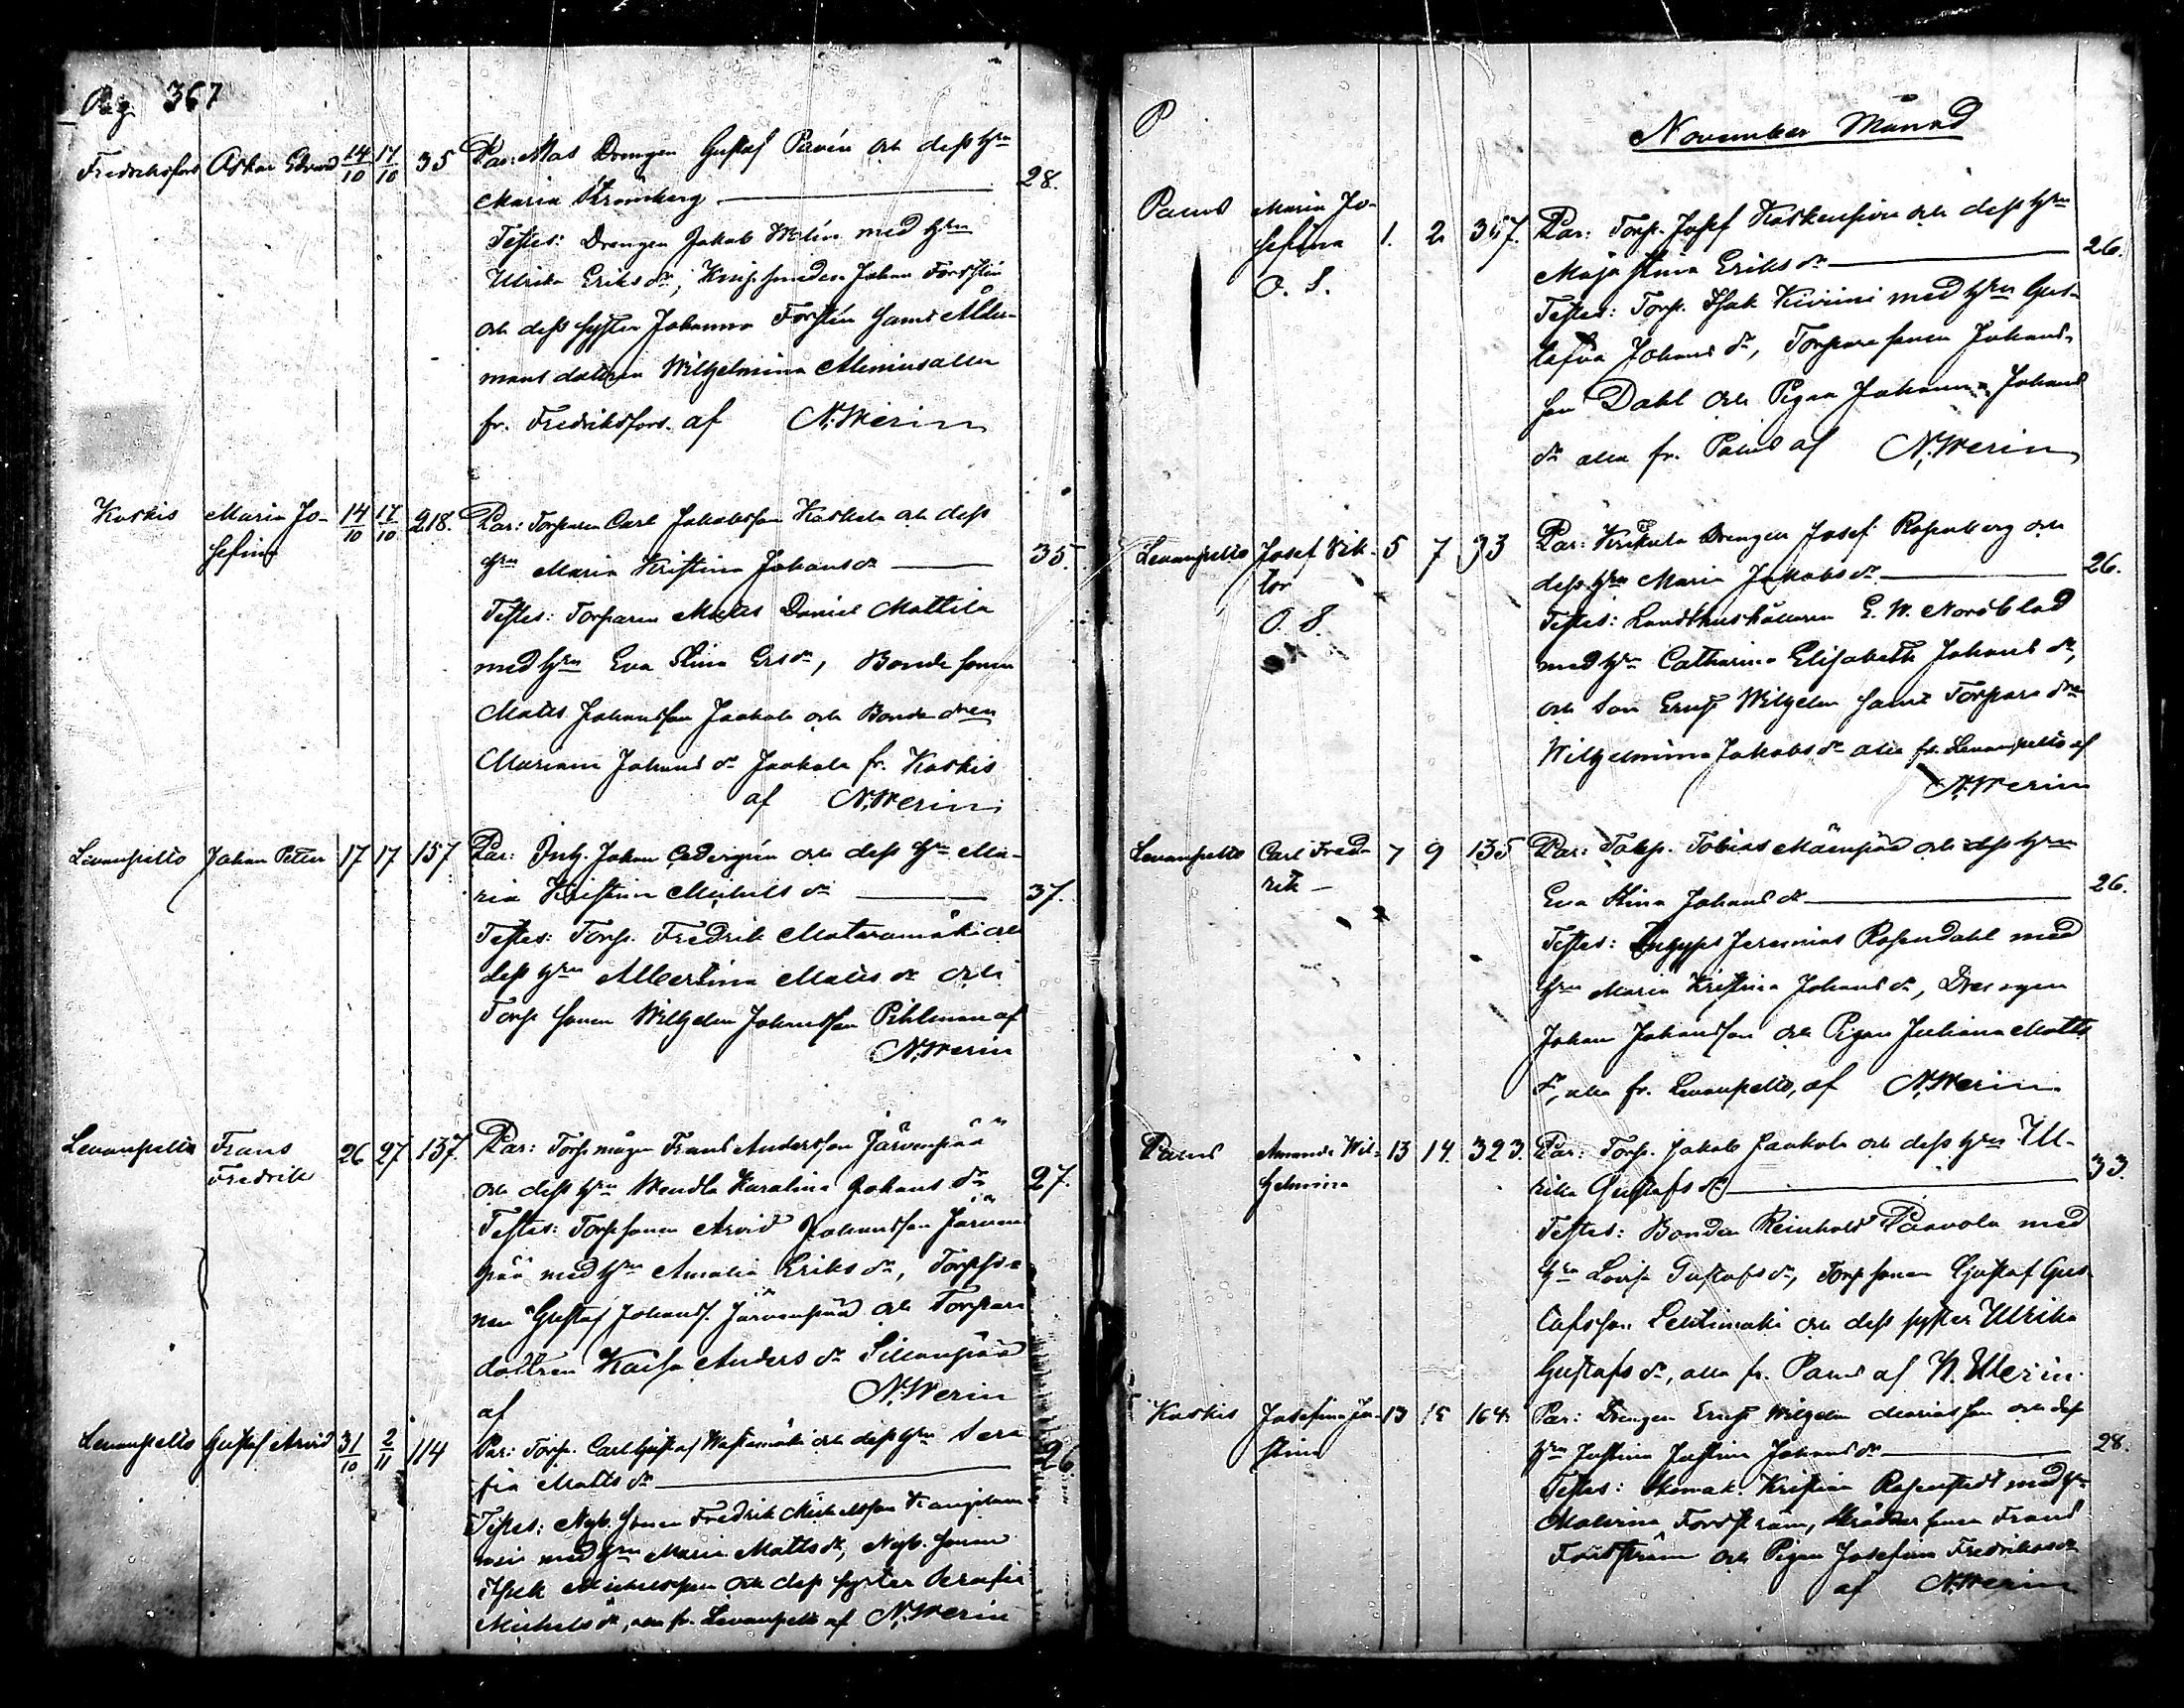 Pag 367
Fredriksfors Oskar Edvard 14/10 17/10 35 Par: Mas Drengen Gustaf Pavén och dess Hru
Maria Strömberg 28.
Testes: Drengen Jakob Welin med Hru
Ulrika Eriks dr, Knip smeden Johan Forstén
och dess syster Johanna Forstén samt Ålder-
mans dottren Wilhelmina alla
fr. Fredriksfors af N. Werin
Koskis Maria Jo- 14/10 17/10 218. Par: Torparen Carl Jakobsson Koskela och dess
sefina Hru Maria Kristina Johans dr 35.
Testes: Torparen Matts Daniel Mattila
med Hru Eva Stina Ers dr, Bonde sonen
Matts Johansson Jaakola och Bonde dren
Mariana Johans dr Jaakola fr. Koskis
af N. Werin
Levanpelto Johan Peter 17 17 157. Par: Inh. Johan Cedergrén och dess Hru Ma-
ria Kristina Michels dr 37.
Testes: Torp. Fredrik Mataramäki och
dess Hru Albertina Matts dr och
Torp sonen Wilhelm Johansson Pihlman af
N. Werin
Levanpelto Frans 26 27 137. Par: Torp mågen Frans Andersson Järvenpää
Fredrik och dess Hru Wendla Karolina Johans dr 27.
Testes: Torp sonen Arvid Johansson Järven
pää med Hru Amalia Eriks dr, Torp so-
nen Gustaf Johans. Järvenpää och Torpare
dottren Kaisa Anders dr Sillanpää
af N. Werin
Levanpelto Gustaf Arvid 31/10 2/11 114 Par: Torp. Carl Gustaf Wastamäki och dess Hru Sera
fia Matts dr 26.
Testes: Nyb. sonen Fredrik Michelsson Kangasnie
mi med Hru Maria Matts dr, Nyb. sonen
Isak Michelsson och dess syster Serafia
Michels dr, alla fr. Levanpelto af N. Werin
P
November Månad
Palus Maria Jo- 1. 2. 357. Par: Torp. Josef Koskensivu och dess Hru
sefina Maja Stina Eriks dr 26.
O. S. Testes: Torp. Isak Kiviniemi med Hru Gus-
tafva Johans dr, Torpare sonen Johans-
son Dahl och Pigan Johanna Johans
dr alla fr. Palus af N. Werin
Levanpelto Josef Vik- 5 7 33 Par: Krikula Drengen Josef Rosenberg och
tor dess Hru Maria Jakobs dr 26.
O. S. Testes: Landbrukshållaren E. W. Nordblad
med Hru Catharina Elisabeth Johans dr,
och son Ernst Wilhelm samt Torpare dren
Wilhelmina Jakobs dr alla fr. Levanpelto af
N. Werin
Levanpelto Carl Fred- 7 9 135 Par: Torp. Tobias Mäenpää och dess Hru
rik Eva Stina Johans dr 26.
Testes: Inhyses Jeremias Rosendahl med
Hru Maria Kristina Johans dr, Drengen
Johan Johansson och Pigan Juliana Matts
dr, alla fr. Levanpelto, af N. Werin
Palus Amanda Wil- 13 14. 323. Par: Torp. Jakob Jaakola och dess Hru Ul-
helmina rika Gustafs dr 33.
Testes: Bonden Reinhold Paavola med
Hru Lovisa Gustafs dr, Torp sonen Gustaf Gus-
tafsson Lehtimäki och dess syster Ulrika
Gustafs dr, alla fr. Palus af N. Werin
Koskis Josefina Ju- 13 15 164 Par: Drengen Ernst Wilhelm Mariasson och dess
stina Hru Justina Justina Johans dr 28.
Testes: Skomak. Kristian Rosenstedt med Hru
Malvina Forsström, Skräddar sonen Frans
Forsström och Pigan Josefina Fredriks dr
af N. Werin